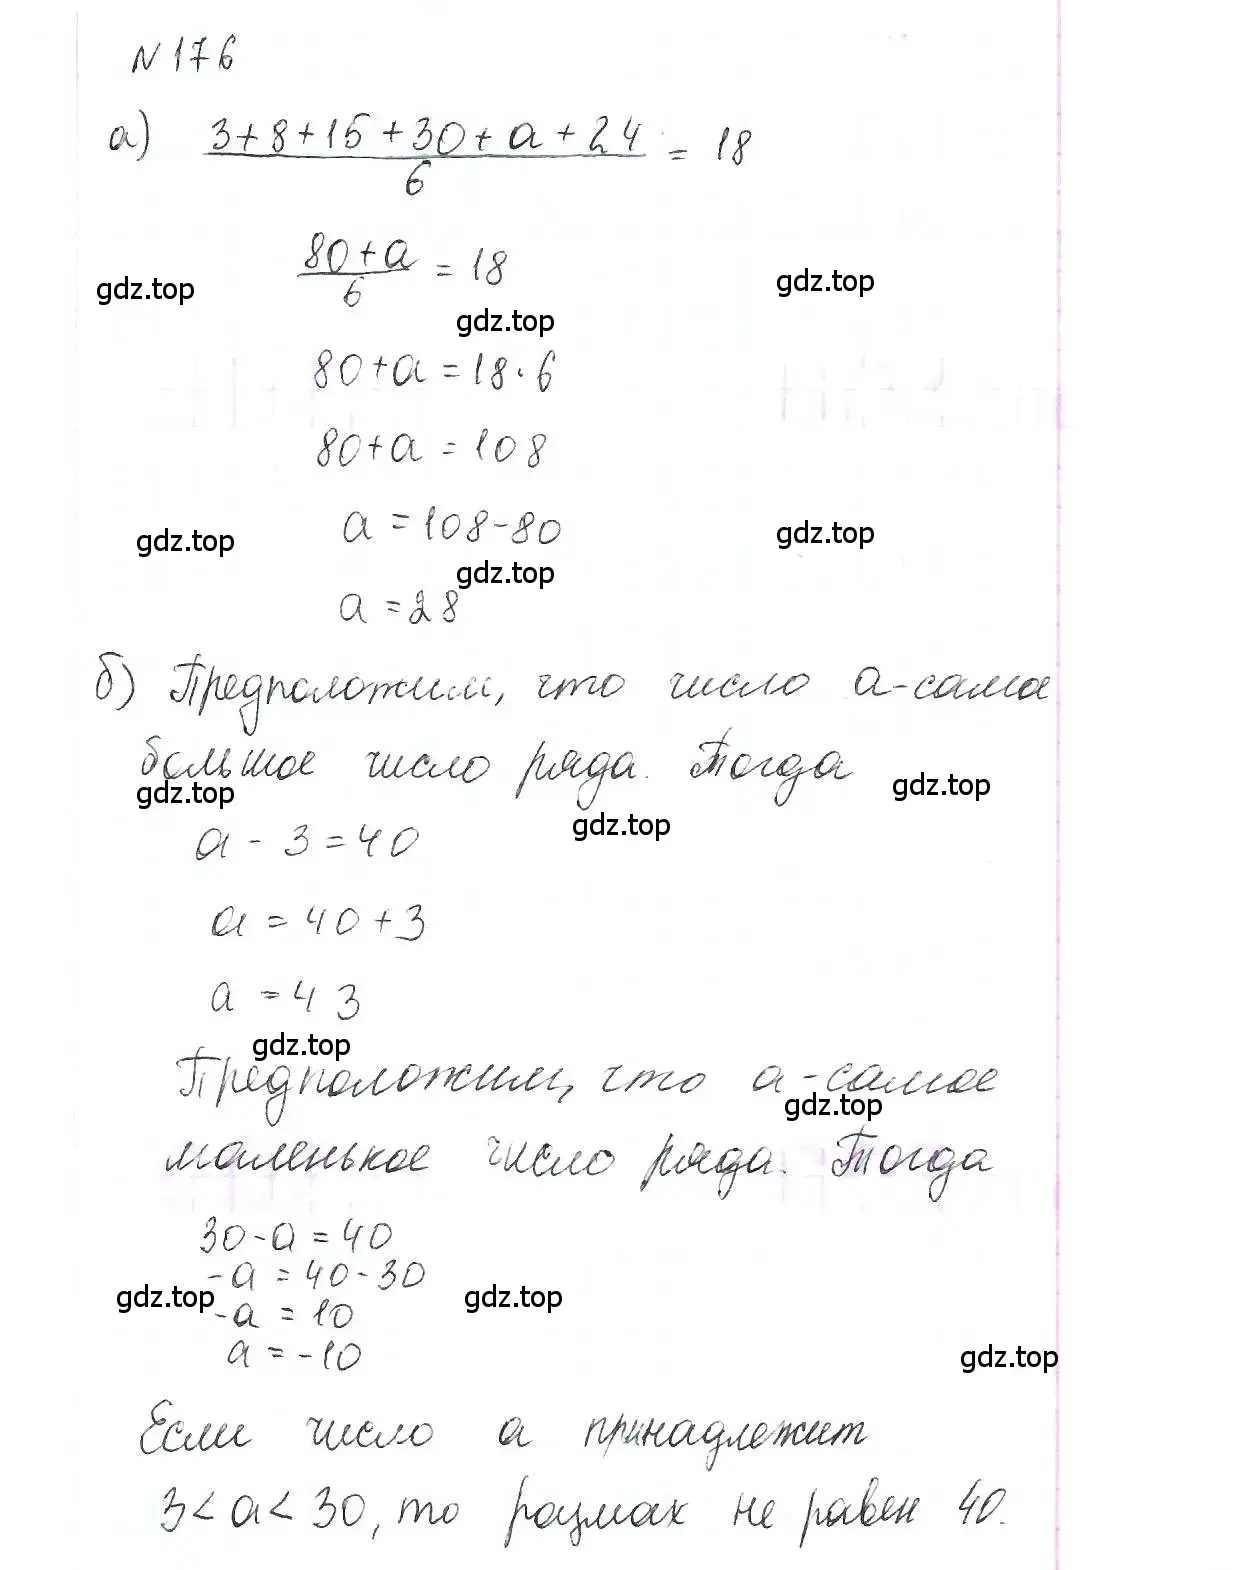 N 176
а) (3+8+15+30+a+24)/6 = 18
(80+a)/6 = 18
gdz.top gdz.top
gdz.top
80+a=18·6
80+a=108
a=108-80
gdz.top gdz.top
gdz.top
a=28
б) Предположим, что число a-само
большое число ряда. Тогда
gdz.top gdz.top
gdz.top
a-3=40
a=40+3
a=43
gdz.top
Предположим, что a-самое
gdz.top
маленькое число ряда. Тогда
30-a=40
-a=40-30
gdz.top gdz.top
-a=10
a=-10
gdz.top
Если число a принадлежит
3<a<30, то размах не равен 40.